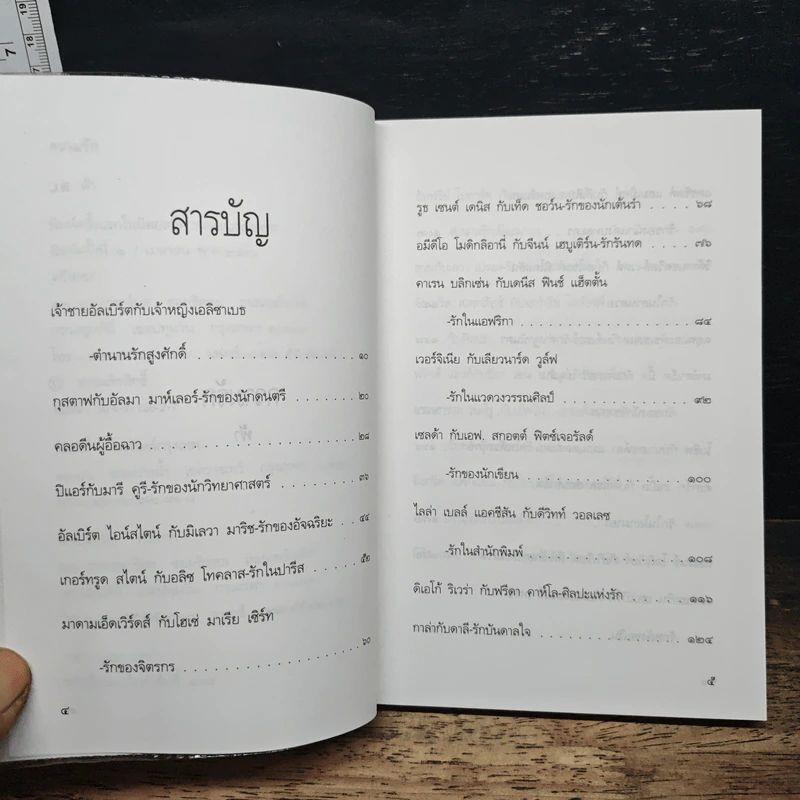 สารบัญ
เจ้าชายอัลเบิร์ตกับเจ้าหญิงเอลิซาเบธ
-ตำนานรักสูงศักดิ์ . . . . . . . . . . . . . . . . . ๑๐
กุสตาฟกับอัลมา มาห์เลอร์-รักของนักดนตรี . . . . . . . . ๒๐
คลอดีนผู้อื้อฉาว . . . . . . . . . . . . . . . . . . . ๒๘
ปิแอร์กับมารี คูรี-รักของนักวิทยาศาสตร์ . . . . . . . . . ๓๖
อัลเบิร์ต ไอน์สไตน์ กับมิเลวา มาริช-รักของอัจฉริยะ . . . . ๔๔
เกอร์ทรูด สไตน์ กับอลิซ โทคลาส-รักในปารีส . . . . . . . ๕๒
มาดามเอ็ดเวิร์ดส์ กับโฮเซ่ มาเรีย เซิร์ท
-รักของจิตรกร . . . . . . . . . . . . . . . . . . . ๖๐
๔
รูธ เซนต์ เดนิส กับเท็ด ชอว์น-รักของนักเต้นรำ . . . . . ๖๘
อมีดีโอ โมดิกลิอานี่ กับจีนน์ เฮบูเติร์น-รักรันทด . . . . . ๗๖
คาเรน บลิกเซ่น กับเดนีส ฟินช์ แฮ็ตตั้น
-รักในแอฟริกา . . . . . . . . . . . . . . . . . . . ๘๔
เวอร์จิเนีย กับเลียวนาร์ด วูล์ฟ
-รักในแวดวงวรรณศิลป์ . . . . . . . . . . . . . . . ๙๒
เซลด้า กับเอฟ. สกอตต์ ฟิตซ์เจอรัลด์
-รักของนักเขียน . . . . . . . . . . . . . . . . . . ๑๐๐
ไลล่า เบลล์ แอคชีสัน กับดีวิทท์ วอลเลซ
-รักในสำนักพิมพ์ . . . . . . . . . . . . . . . . . . ๑๐๘
ดิเอโก้ ริเวร่า กับฟรีดา คาห์โล-ศิลปะแห่งรัก . . . . . . ๑๑๖
กาล่ากับดาลี-รักบันดาลใจ . . . . . . . . . . . . . . ๑๒๔
๕
7
19
18
17